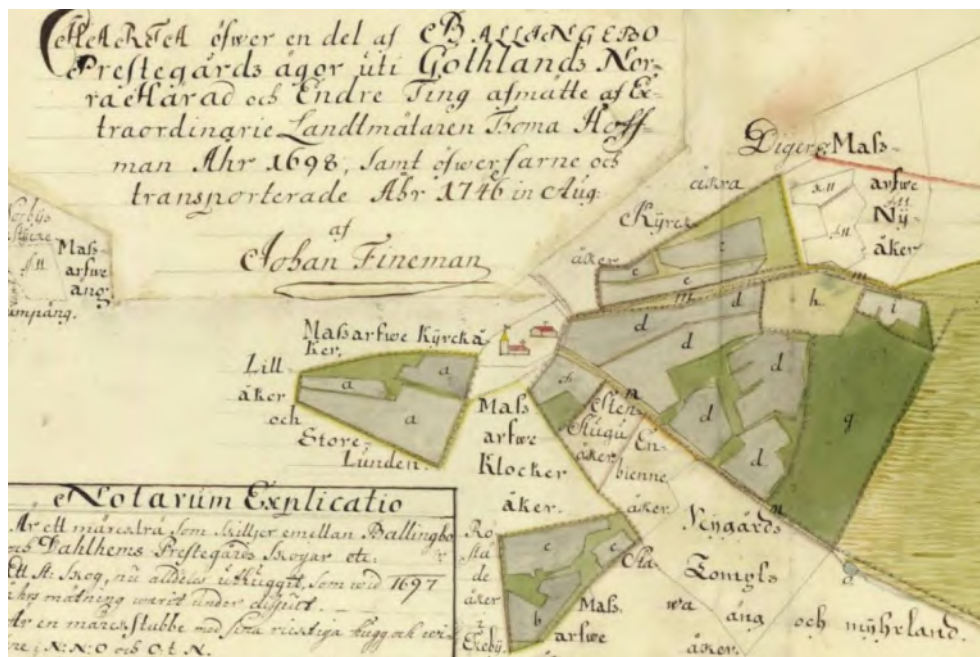 CHARTA öfwer en del af BALLINGEBO
Prestegårds ägor uti Gothlands Nor-
ra Härad och Endre Ting afmätte af Ex-
traordinarie Landtmätaren Thoma Hoff-
man Åhr 1698, samt öfwerfarne och
transporterade Åhr 1746 in Aug:
af
Johan Fineman
Mass-
arfwe
äng
Digere Mass-
arfwe
Ny-
åker
åkra
Kyrck
åker
c
c
c
m
m
d
d
h
i
d
d
d
d
g
n
n
Massarfwe Kyrckå-
ker.
Lill
åker
och
Store-
Lunden.
a
a
a
Mass
arfwe
Klocker
åker.
Sten
Stugu
åker
En-
bienne
åker
Nygårds
äng och myhrland.
wa
åker.
åker
i
Ekeby.
e
b
Mass.
arfwe
Notarum Explicatio
Är ett märckträ, som skilljer emellan Ballingbo
och Dahlhems Prestegårds skogar etc.
Ett St: Skog, nu alldeles uthuggit, som wid 1697
åhrs mätning warit under disput.
Är en märckstubbe med sina richtiga hugg och
N: N: O och O. t. N.